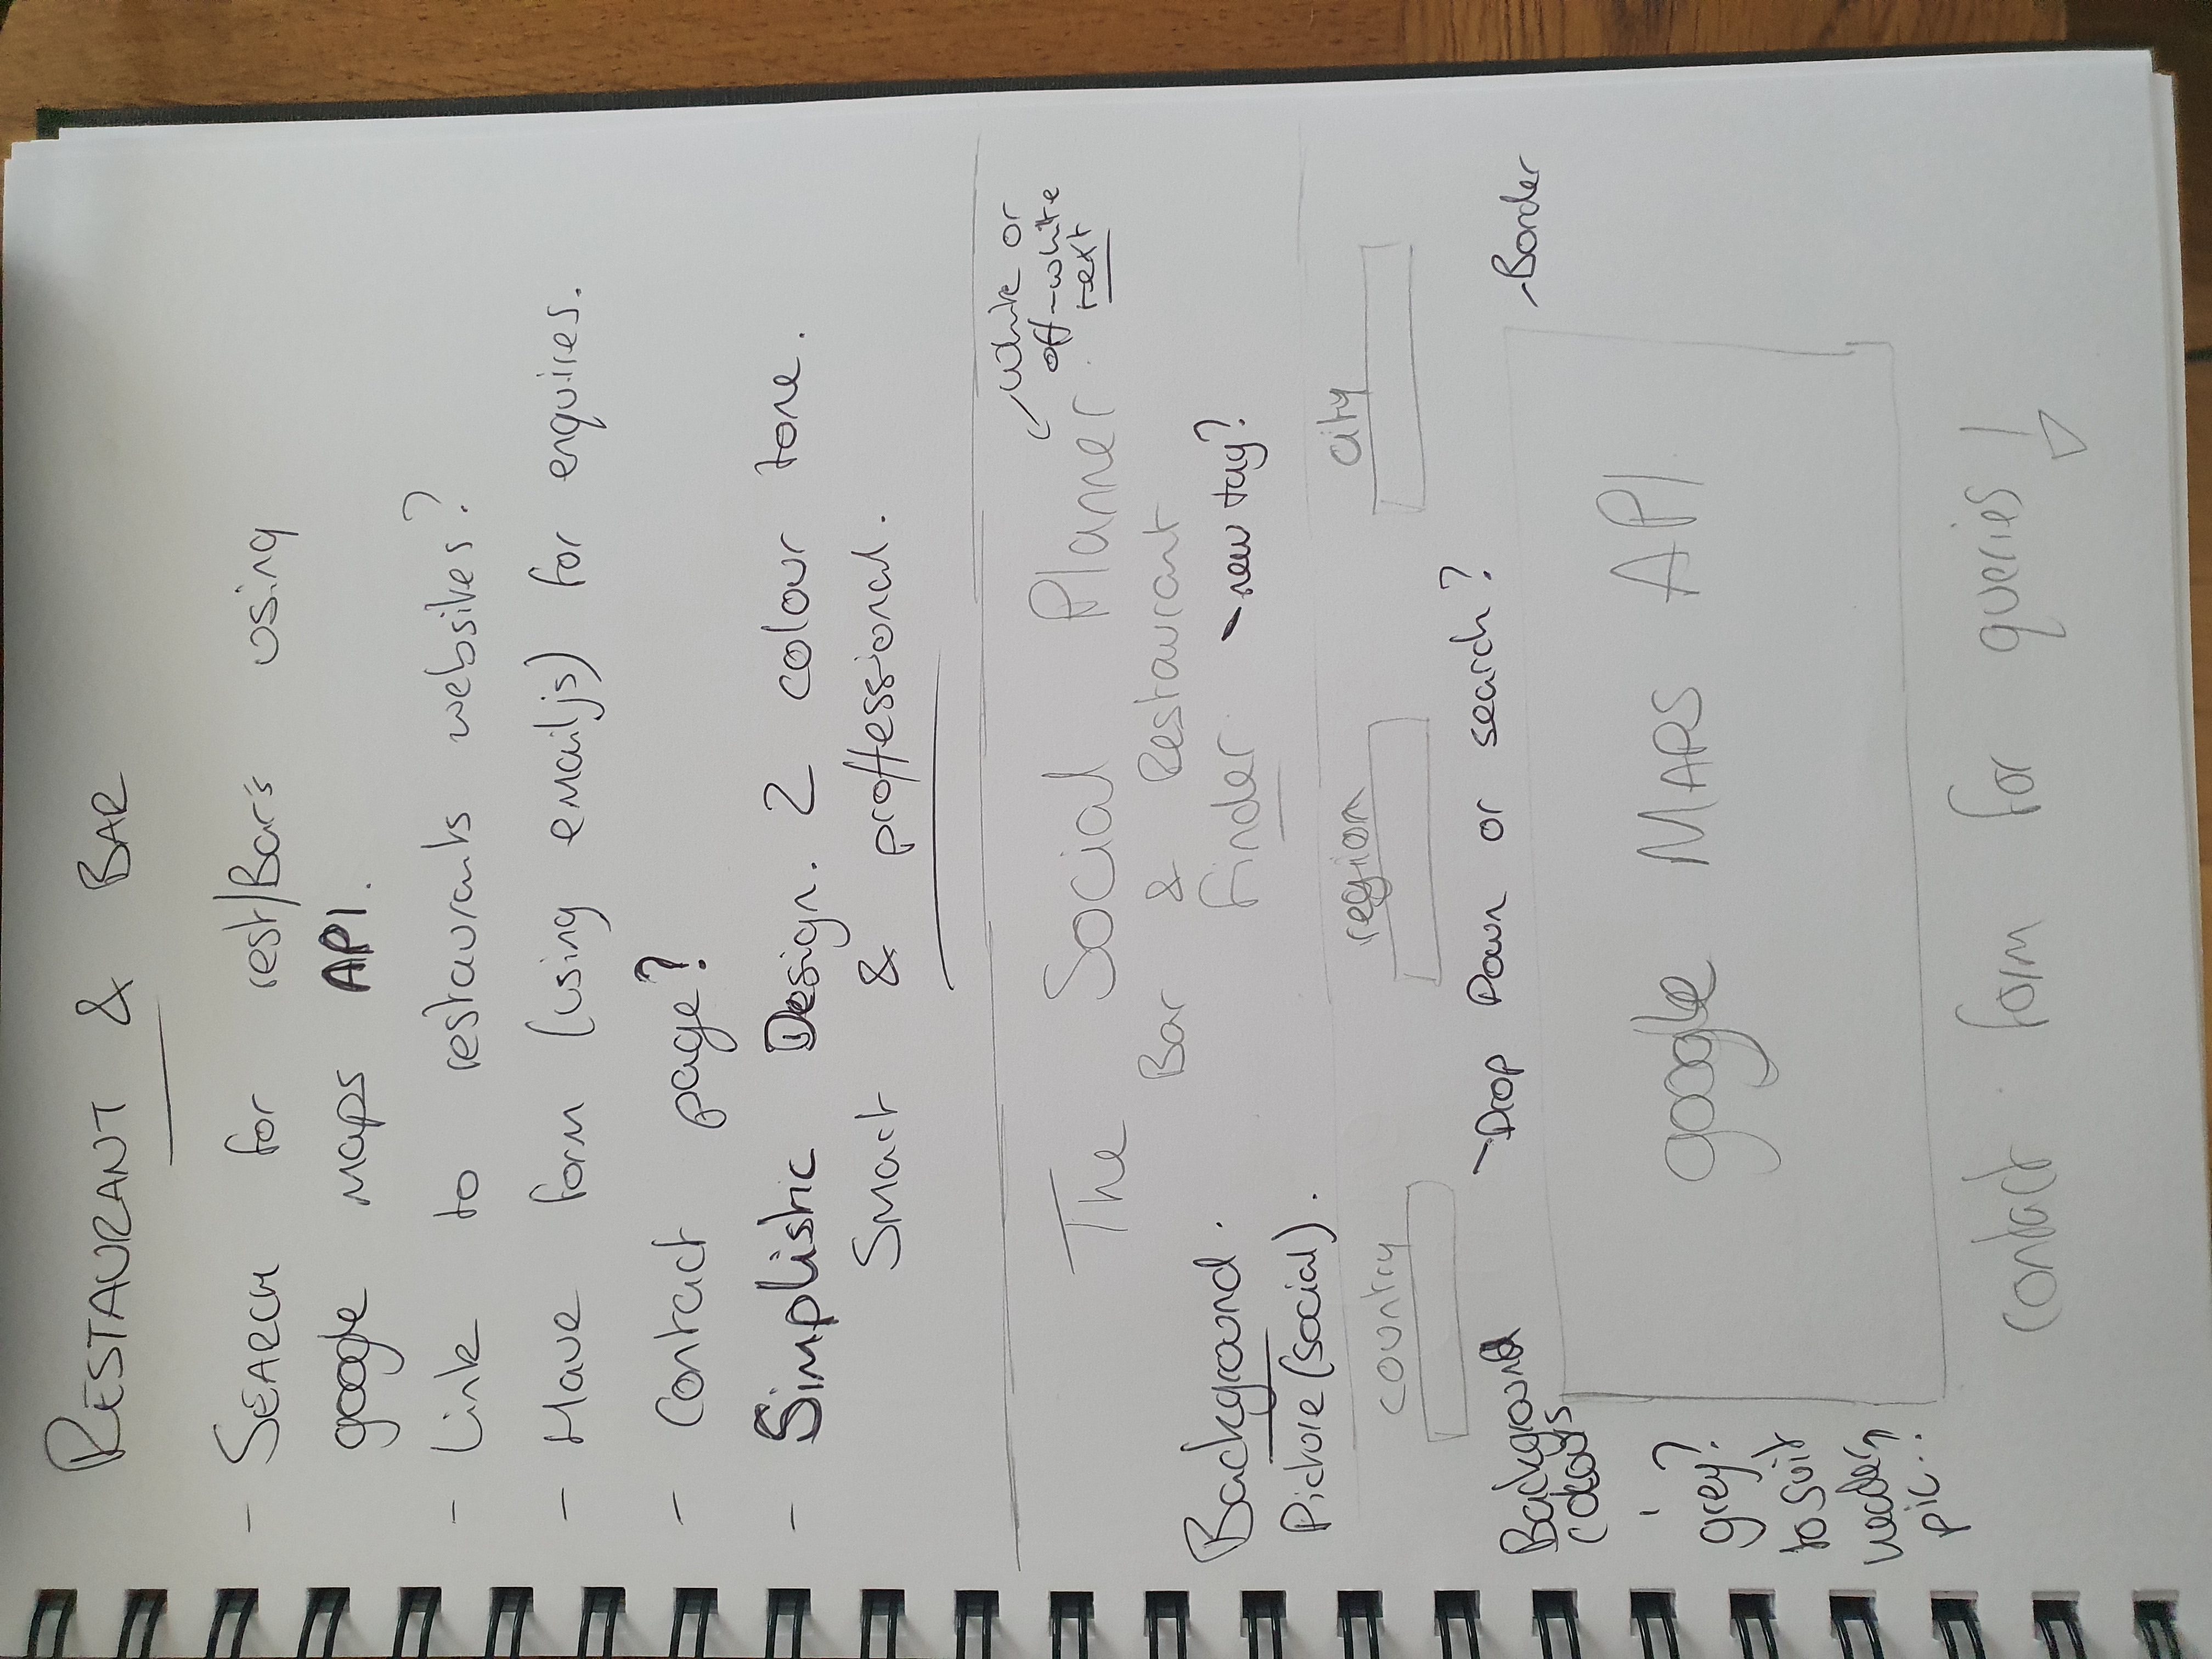 RESTAURANT & BAR
- SEARCH for rest/Bar's using
google maps API.
- Link to restaurants websites?
- Have form (using emailjs) for enquires.
- Contact page?
- Simplistic Design. 2 colour tone.
Smart & proffessional.
White or
off-white
text
The Social Planner.
Bar & Restaurant
Finder
- new tag?
Background.
Picture (social).
country
region
city
- Drop Down or search?
Background
colours
- Border
grey?
to suit
header
pic..?
google MAPS API
contact form for queries